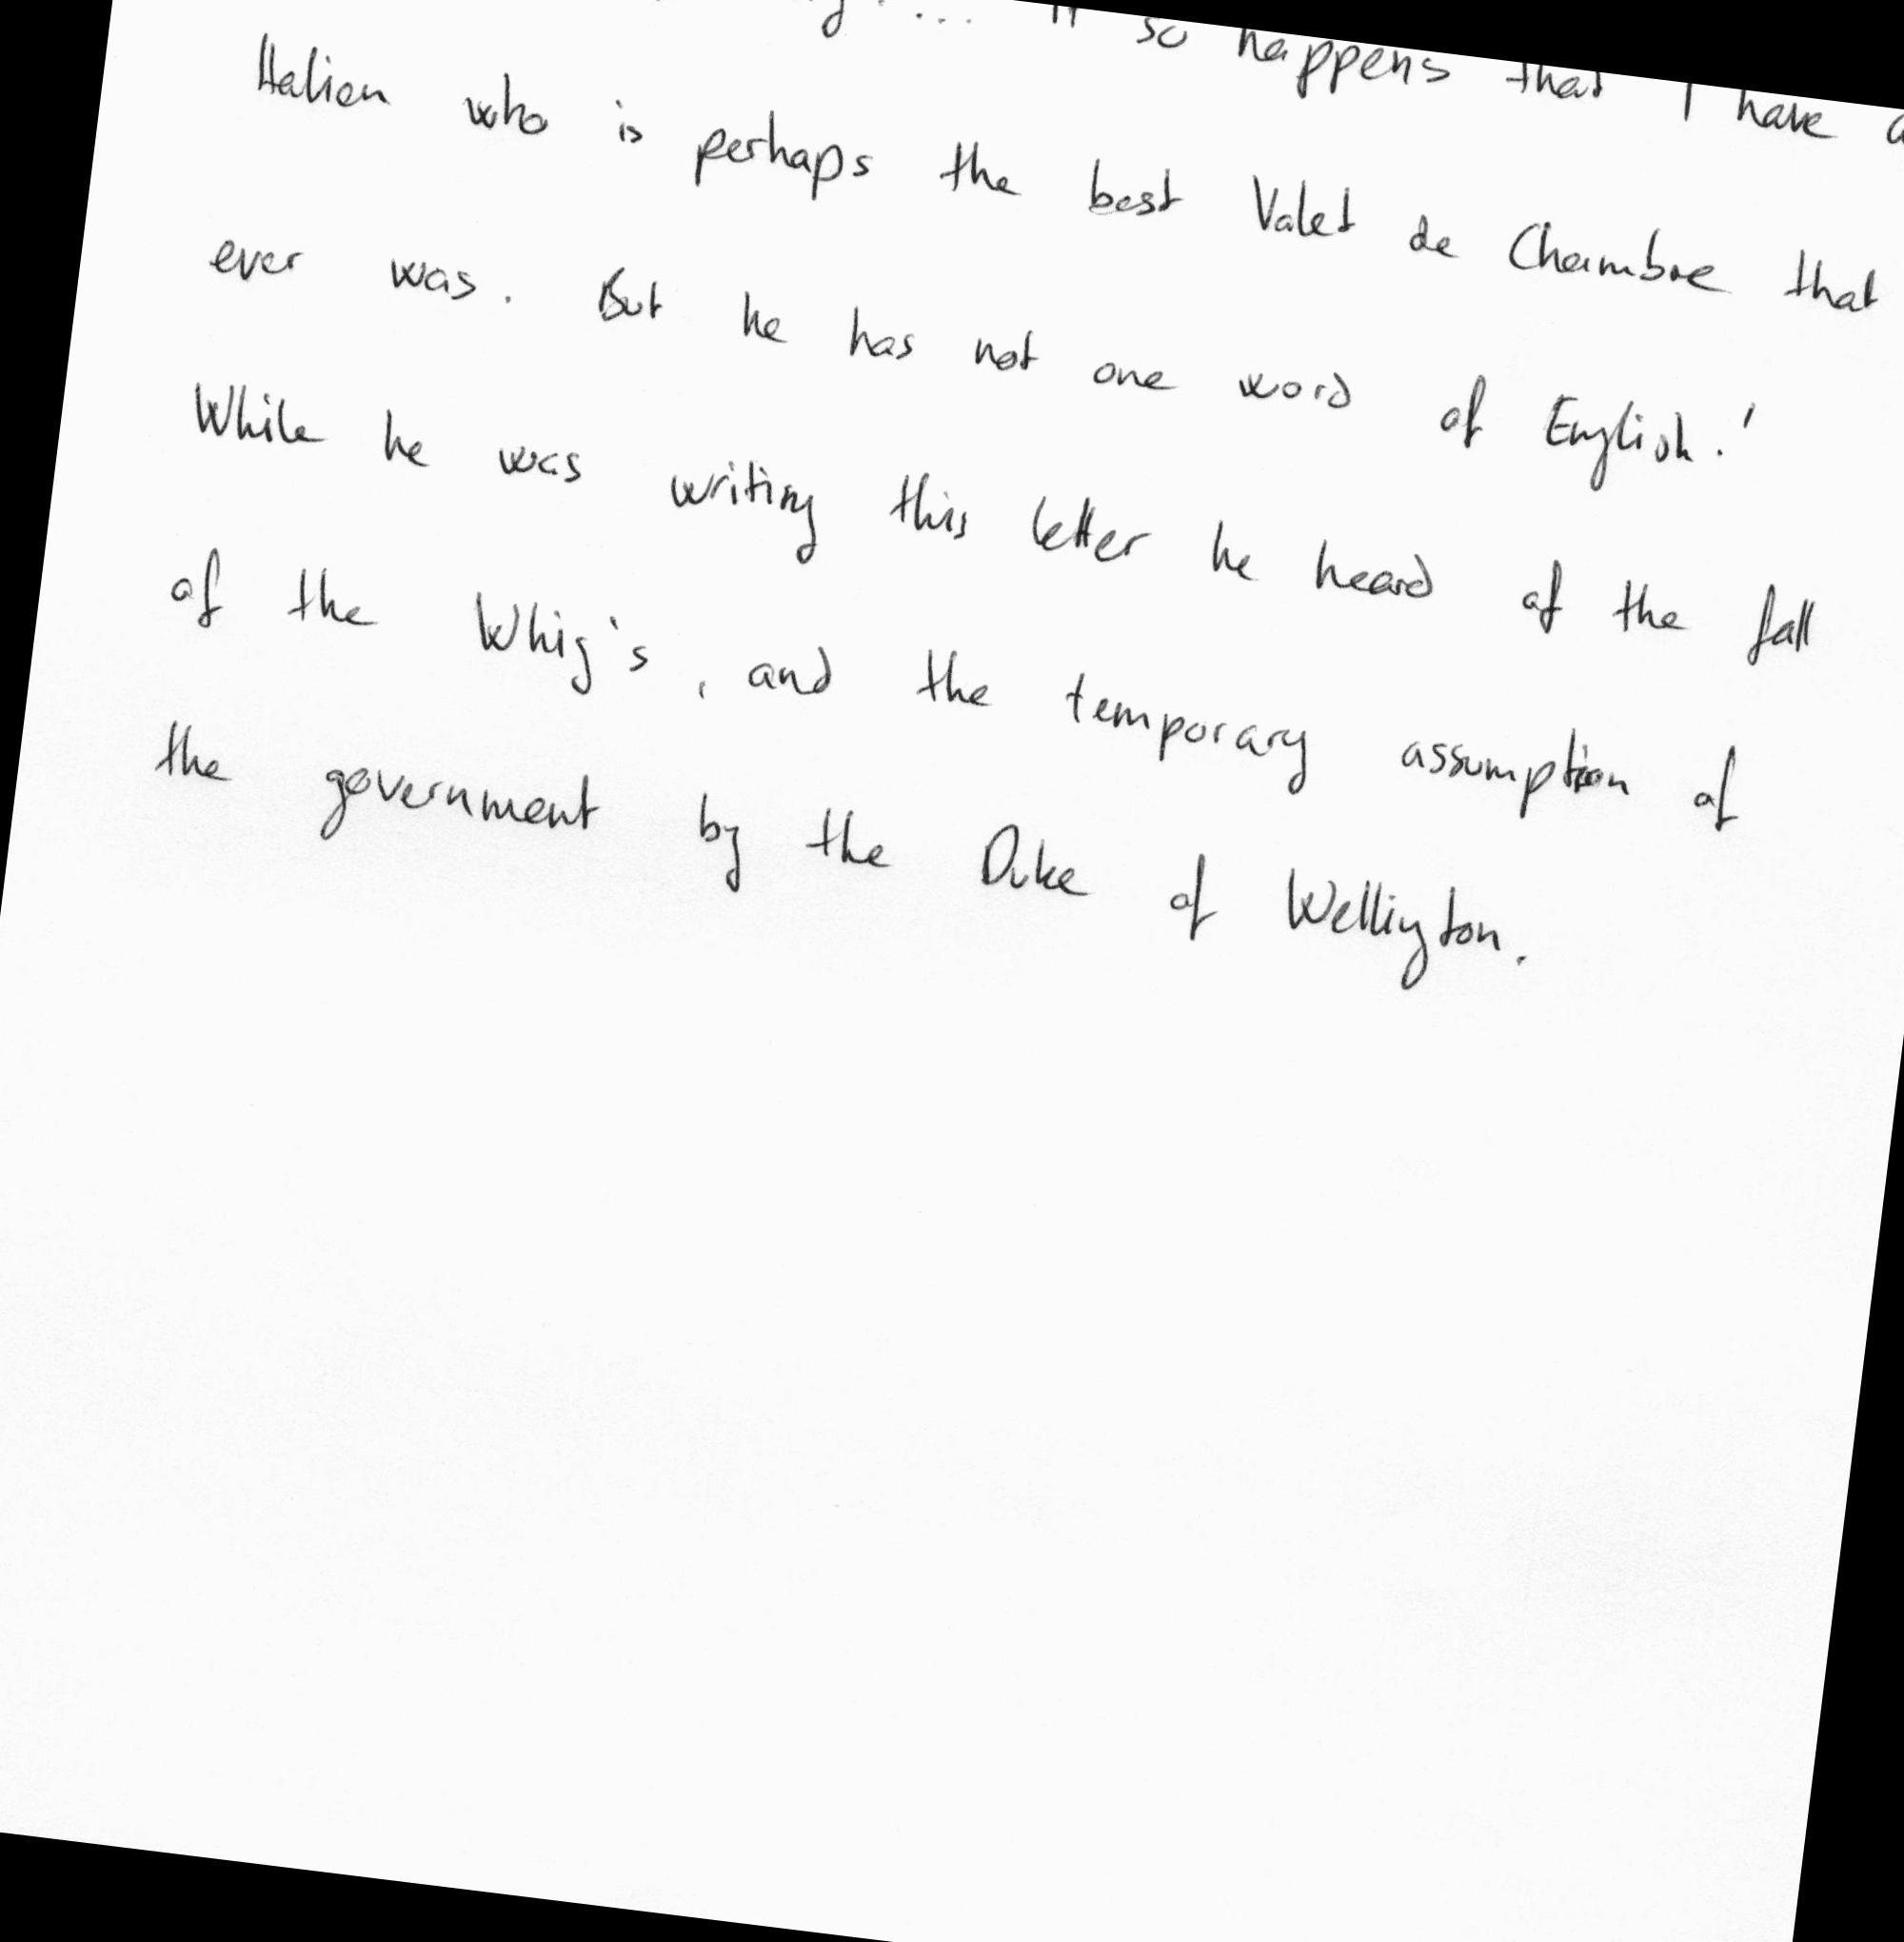 ... It so happens that I have a
Italien who is perhaps the best Valet de Chambre that
ever was. But he has not one word of English.'
While he was writing this letter he heard of the fall
of the Whig's, and the temporary assumption of
the government by the Duke of Wellington.